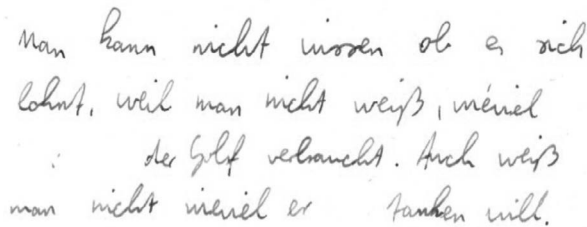 Man kann nicht wissen ob es sich
lohnt, weil man nicht weiß, wieviel
der Golf verbraucht. Auch weiß
man nicht wieviel er tanken will.